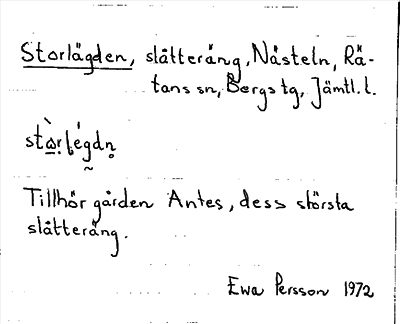 Storlägden, slåtteräng, Nästeln, Rä-
tans sn, Bergs tg, Jämtl. l.
Tillhör gården Antes, dess största
slåtteräng.
Ewa Persson 1972